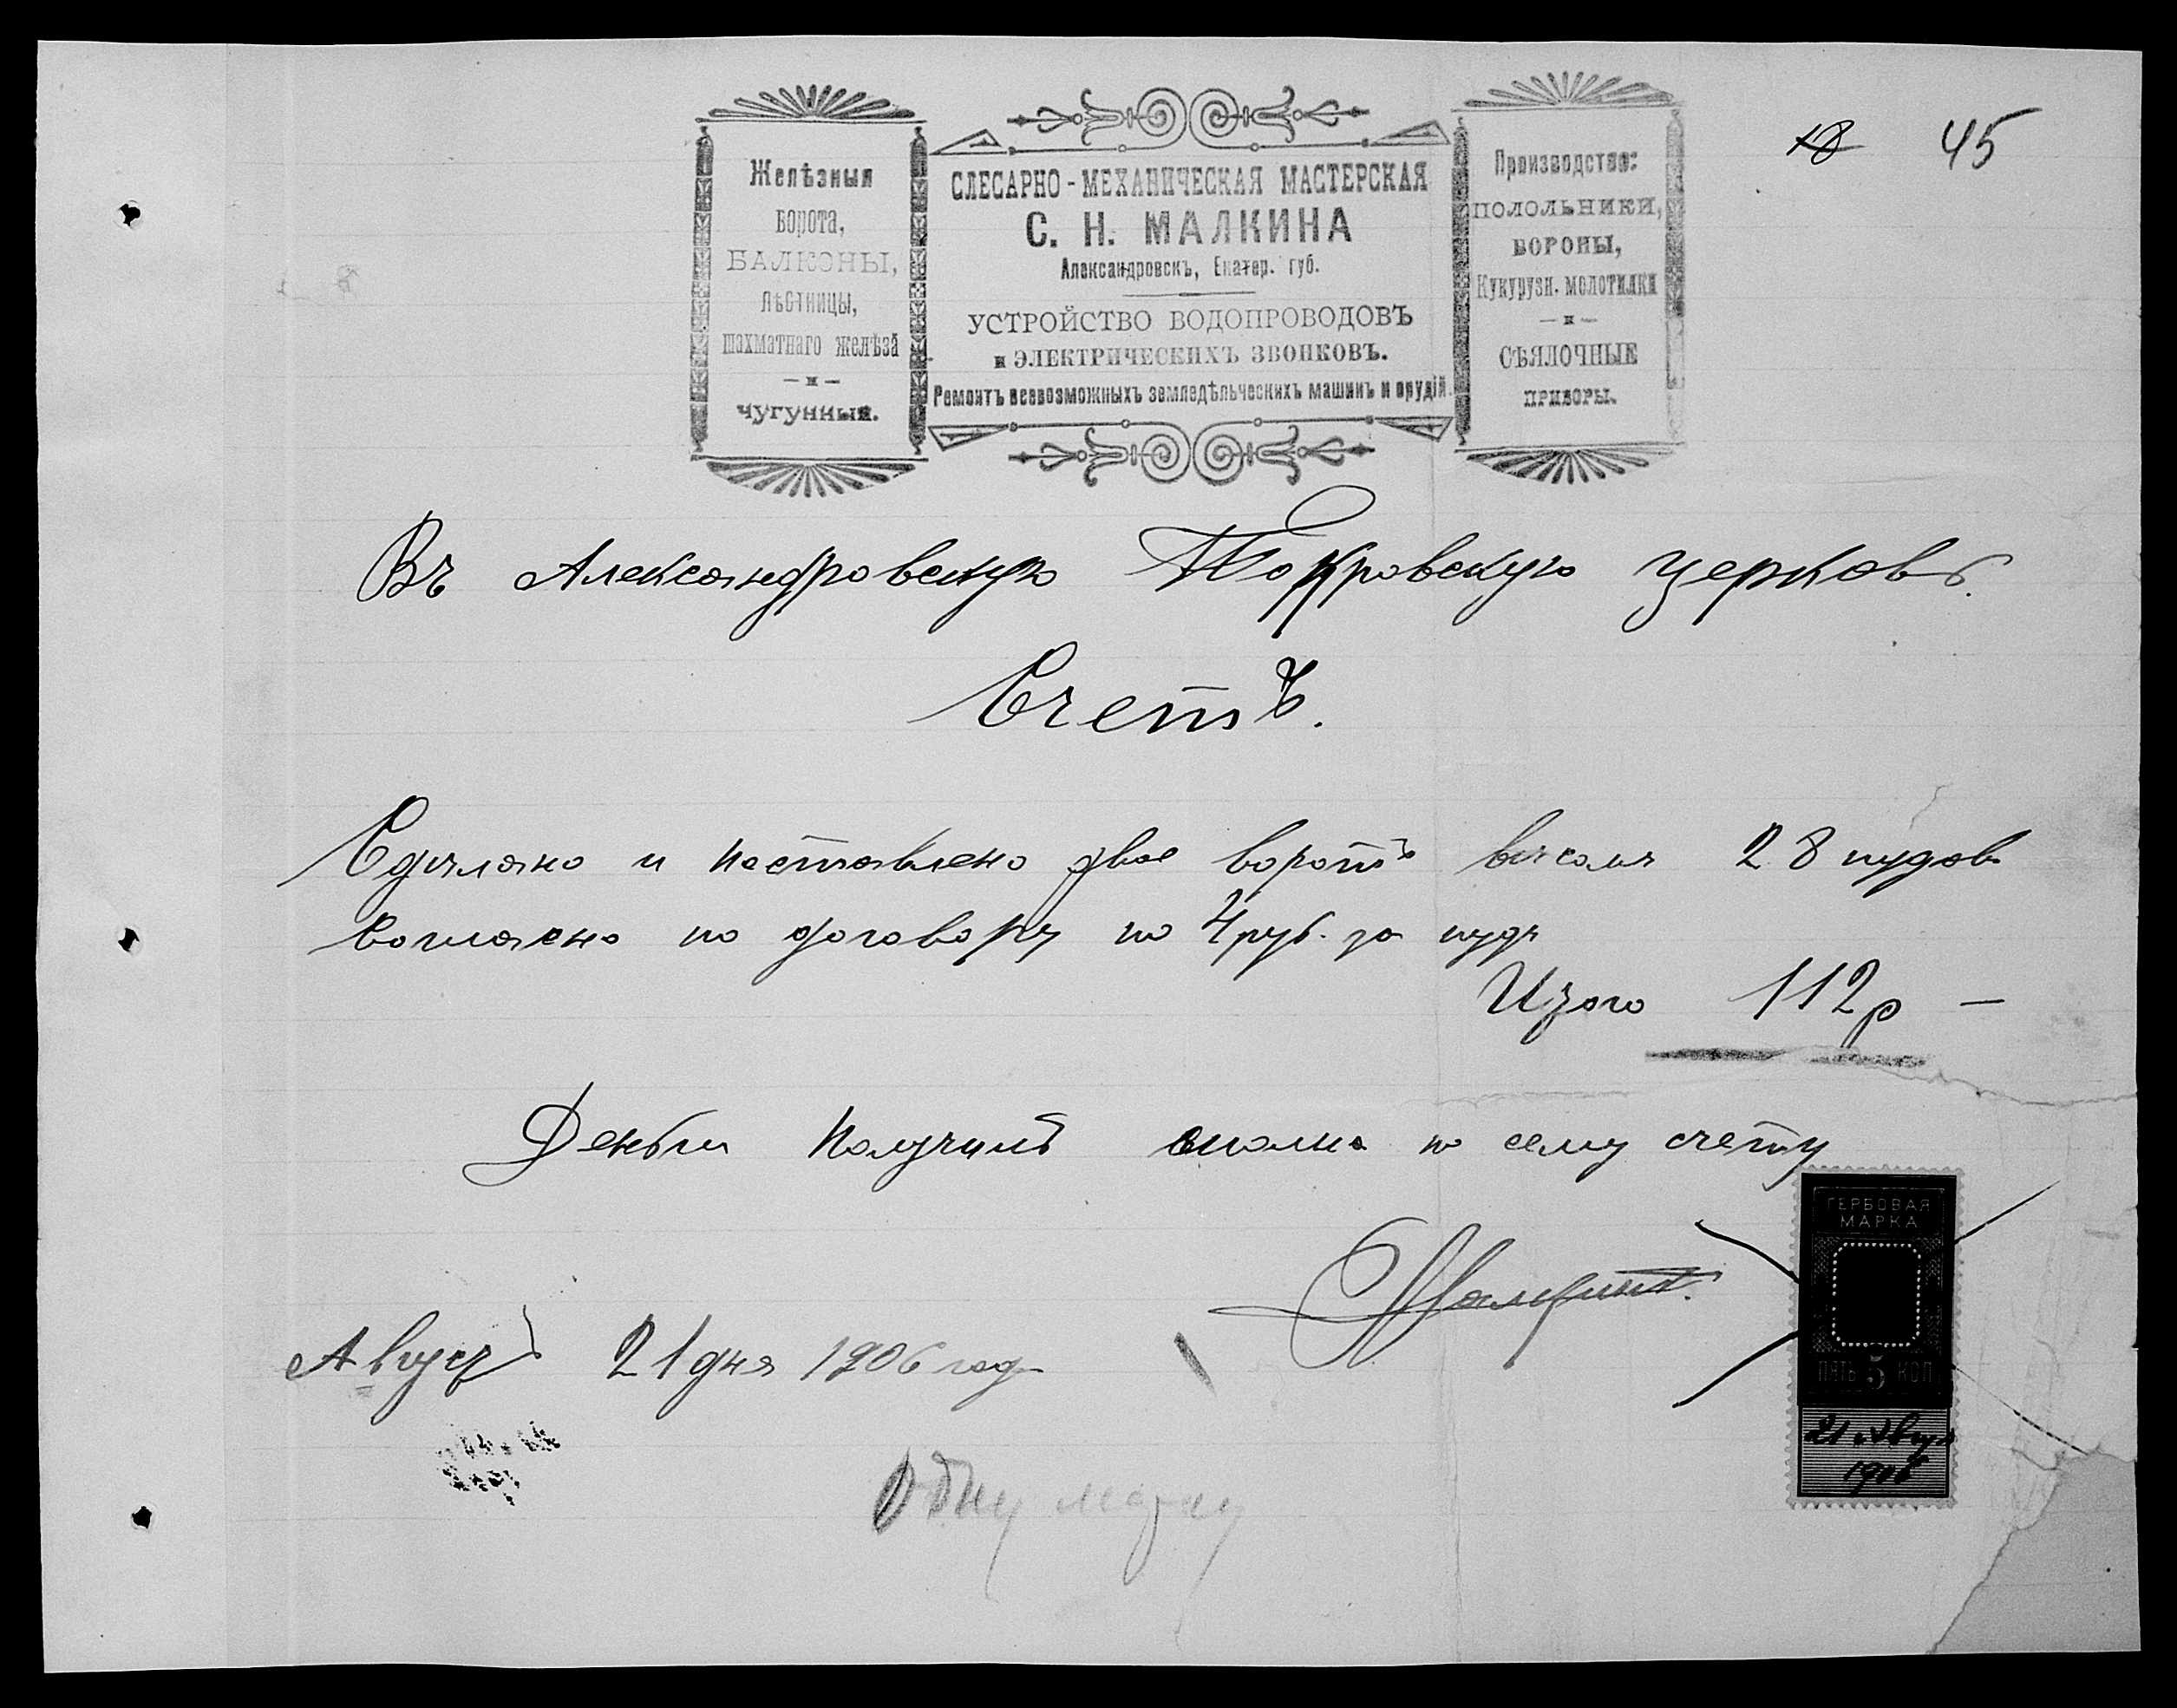 18 45
Желѣзныя
ворота,
БАЛКОНЫ,
лѣстницы,
шахматнаго желѣза
— и —
чугунныя.
СЛЕСАРНО-МЕХАНИЧЕСКАЯ МАСТЕРСКАЯ
С. Н. МАЛКИНА
Александровскъ, Екатер. губ.
УСТРОЙСТВО ВОДОПРОВОДОВЪ
и ЭЛЕКТРИЧЕСКИХЪ ЗВОНКОВЪ.
Ремонтъ всевозможныхъ земледѣльческихъ машинъ и орудій.
Производство:
ПОЛОЛЬНИКИ,
БОРОНЫ,
Кукурузн. молотилки
— и —
СѢЯЛОЧНЫЕ
ПРИБОРЫ.
Въ Александровскую Покровскую церковь.
Счетъ.
Сдѣлано и поставлено двое воротъ вѣсомъ 28 пудовъ
согласно по договору по 4 руб. за пудъ
Итого 112 р —
Деньги получилъ сполна по сему счету
Малкинъ.
Августъ 21 дня 1906 год
ГЕРБОВАЯ
МАРКА
ПЯТЬ 5 КОП
21 Авгус
1906
Одну марку